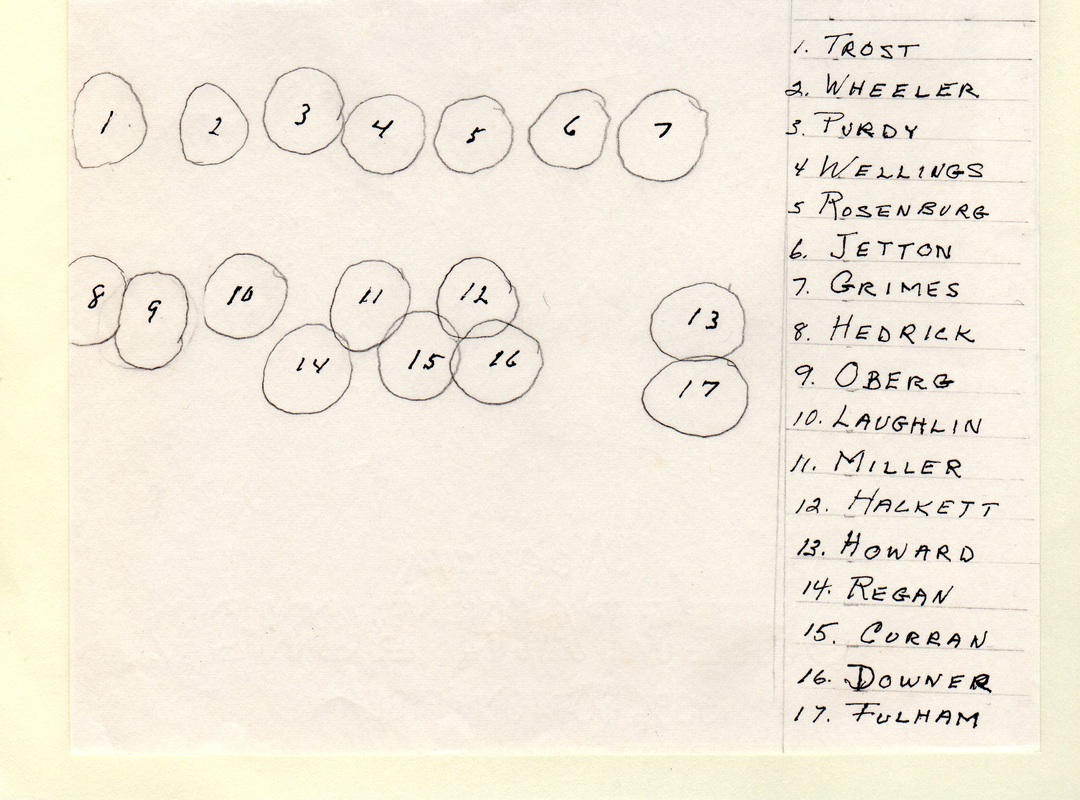 1 2 3 4 5 6 7
8 9 10 11 12 13
14 15 16 17
1. TROST
2. WHEELER
3. PURDY
4 WELLINGS
5 ROSENBURG
6. JETTON
7. GRIMES
8. HEDRICK
9. OBERG
10. LAUGHLIN
11. MILLER
12. HALKETT
13. HOWARD
14. REGAN
15. CURRAN
16. DOWNER
17. FULHAM